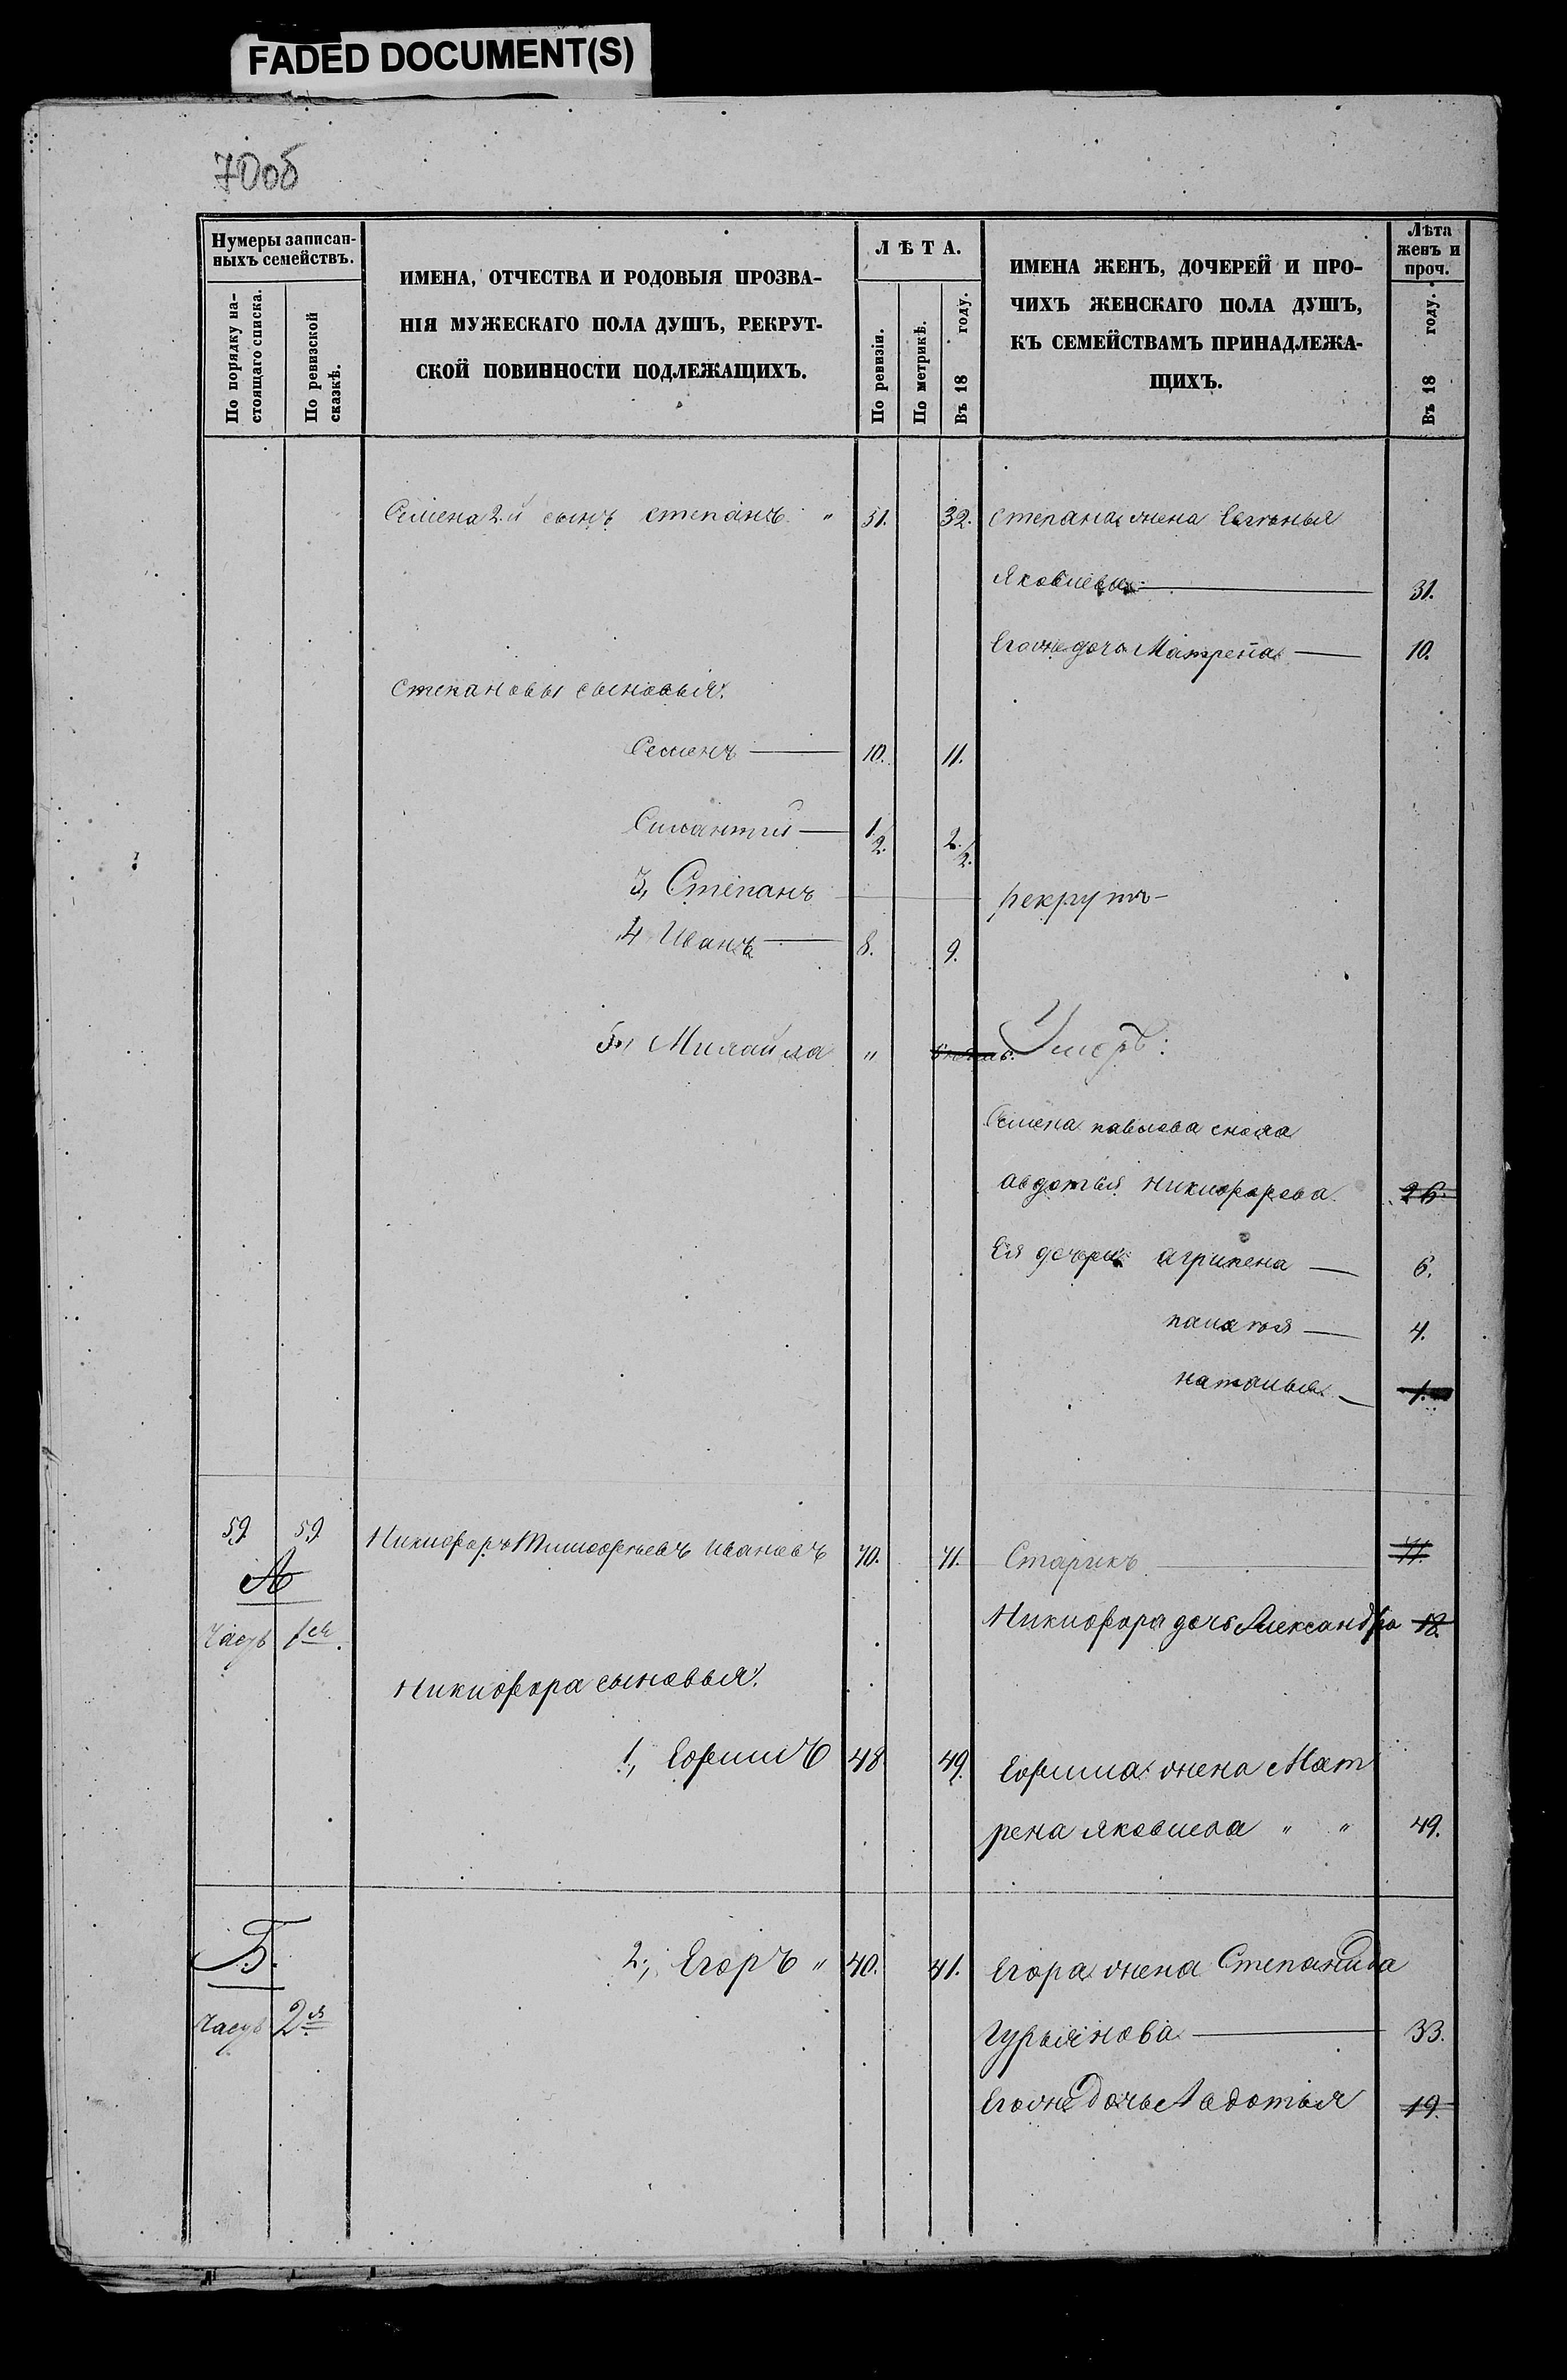 FADED DOCUMENT(S)
70об
Нумеры записан-
ныхъ семействъ.
По порядку на-
стоящаго списка.
По ревизской
сказкѣ.
ИМЕНА, ОТЧЕСТВА И РОДОВЫЯ ПРОЗВА-
НІЯ МУЖЕСКАГО ПОЛА ДУШЪ, РЕКРУТ-
СКОЙ ПОВИННОСТИ ПОДЛЕЖАЩИХЪ.
ЛѢТА.
По ревизіи.
По метрикѣ.
Въ 18 году.
ИМЕНА ЖЕНЪ, ДОЧЕРЕЙ И ПРО-
ЧИХЪ ЖЕНСКАГО ПОЛА ДУШЪ,
КЪ СЕМЕЙСТВАМЪ ПРИНАДЛЕЖА-
ЩИХЪ.
Лѣта
женъ и
проч.
Въ 18 году.
Семена 2й сынъ степанъ " 31. 32. степана жена
Яковлева 31.
Егоже дочь Матрена 10.
степановы сыновья:
Семенъ 10. 11.
1/2. 2./2.
3, Степанъ рекрутъ
4 Иванъ 8. 9.
5, Михайла " Умеръ:
Семена павлова сноха
авдотья никифорова 26.
Ея дочери агрипена 6.
4.
наталья 1.
59 59 Никифоръ Тимофеевъ ивановъ 70. 71. Старикъ 71.
А
Никифора дочь Александра 18.
Часть 1ая
Никифора сыновья:
1, Ефимъ 48 49. Ефима жена Мат
рена яковлева " " 49.
Б.
2, Егоръ " 40. 41. Егора жена Степанида
Часть 2я
Гурьянова 33.
Егоже дочь Авдотья 19.